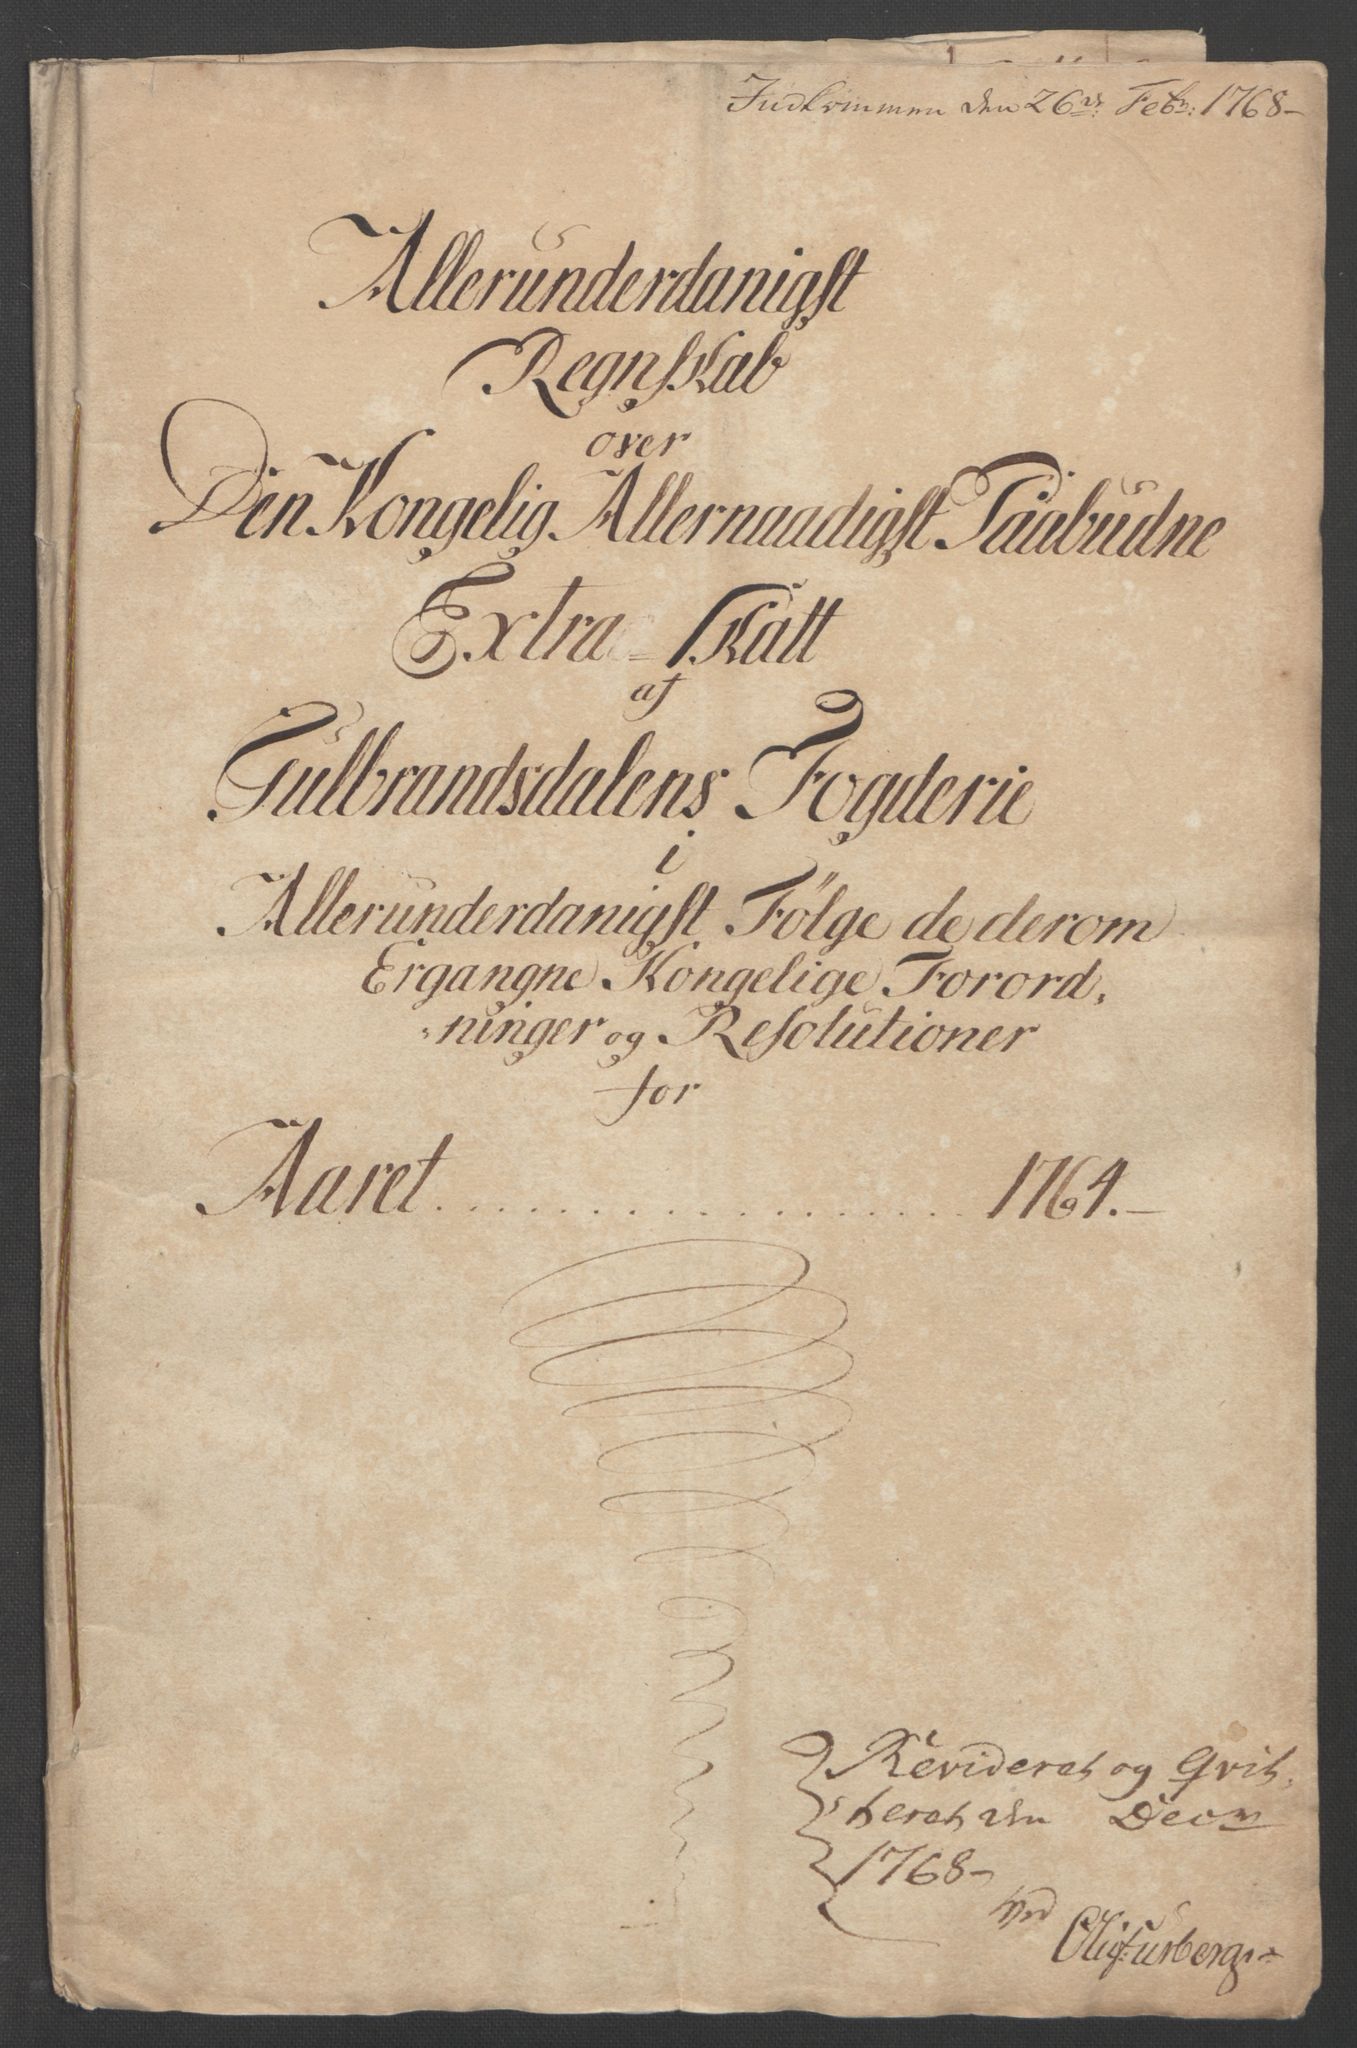 Indkommen den 26de Febr: 1768-
Allerunderdanigst
Regnskab
over
Den Kongelig Allernaadigst Paabudne
Extra-Skatt
af
Gulbrandsdalens Fogderie
i
Allerunderdanigst Følge de derom
Ergangne Kongelige Forord,
ninger og Resolutioner
for
Aaret . . . . . . . . . . . . . . . . . . 1764.-
Revideret og Qvit,
teret den Decbr
1768-
ved